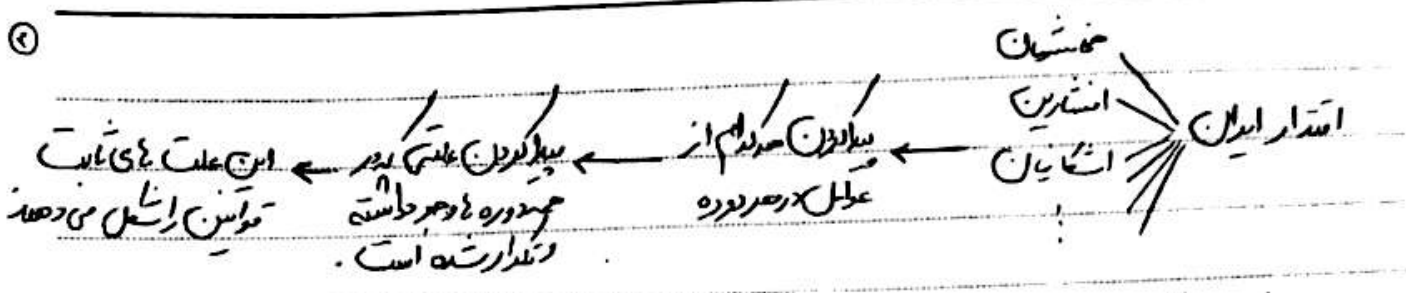 ۲
اقتدار ایران
هخامنشیان
افشاریان
اشکانیان
پیدا کردن هر کدام از
عوامل در هر دوره
پیدا کردن علتی که در
همه دوره ها وجود داشته
و تکرار شده است.
این علت های ثابت
قوانین را شکل می دهند